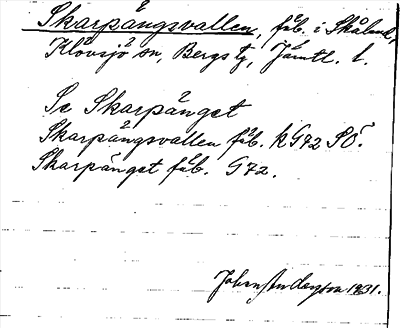 Skarpängsvallen, fäb. i Skålan,
Klövsjö sn, Bergs tg, Jämtl. l.
Se Skarpänget
Skarpängsvallen fäb. k G92 SO.
Skarpänget fäb. G72.
Johan Anderson 1931.